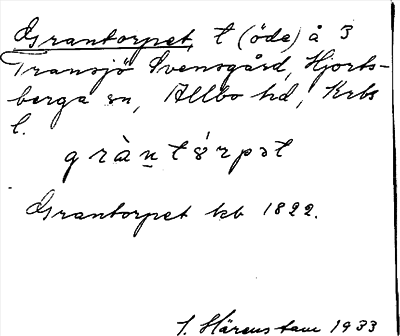 Grantorpet, t (öde) å 3
Transjö Svensgård, Hjorts-
berga sn, Allbo hd, Krbs
l.
gràn̲tǿrpət
Grantorpet kb 1822.
J. Härenstam 1933